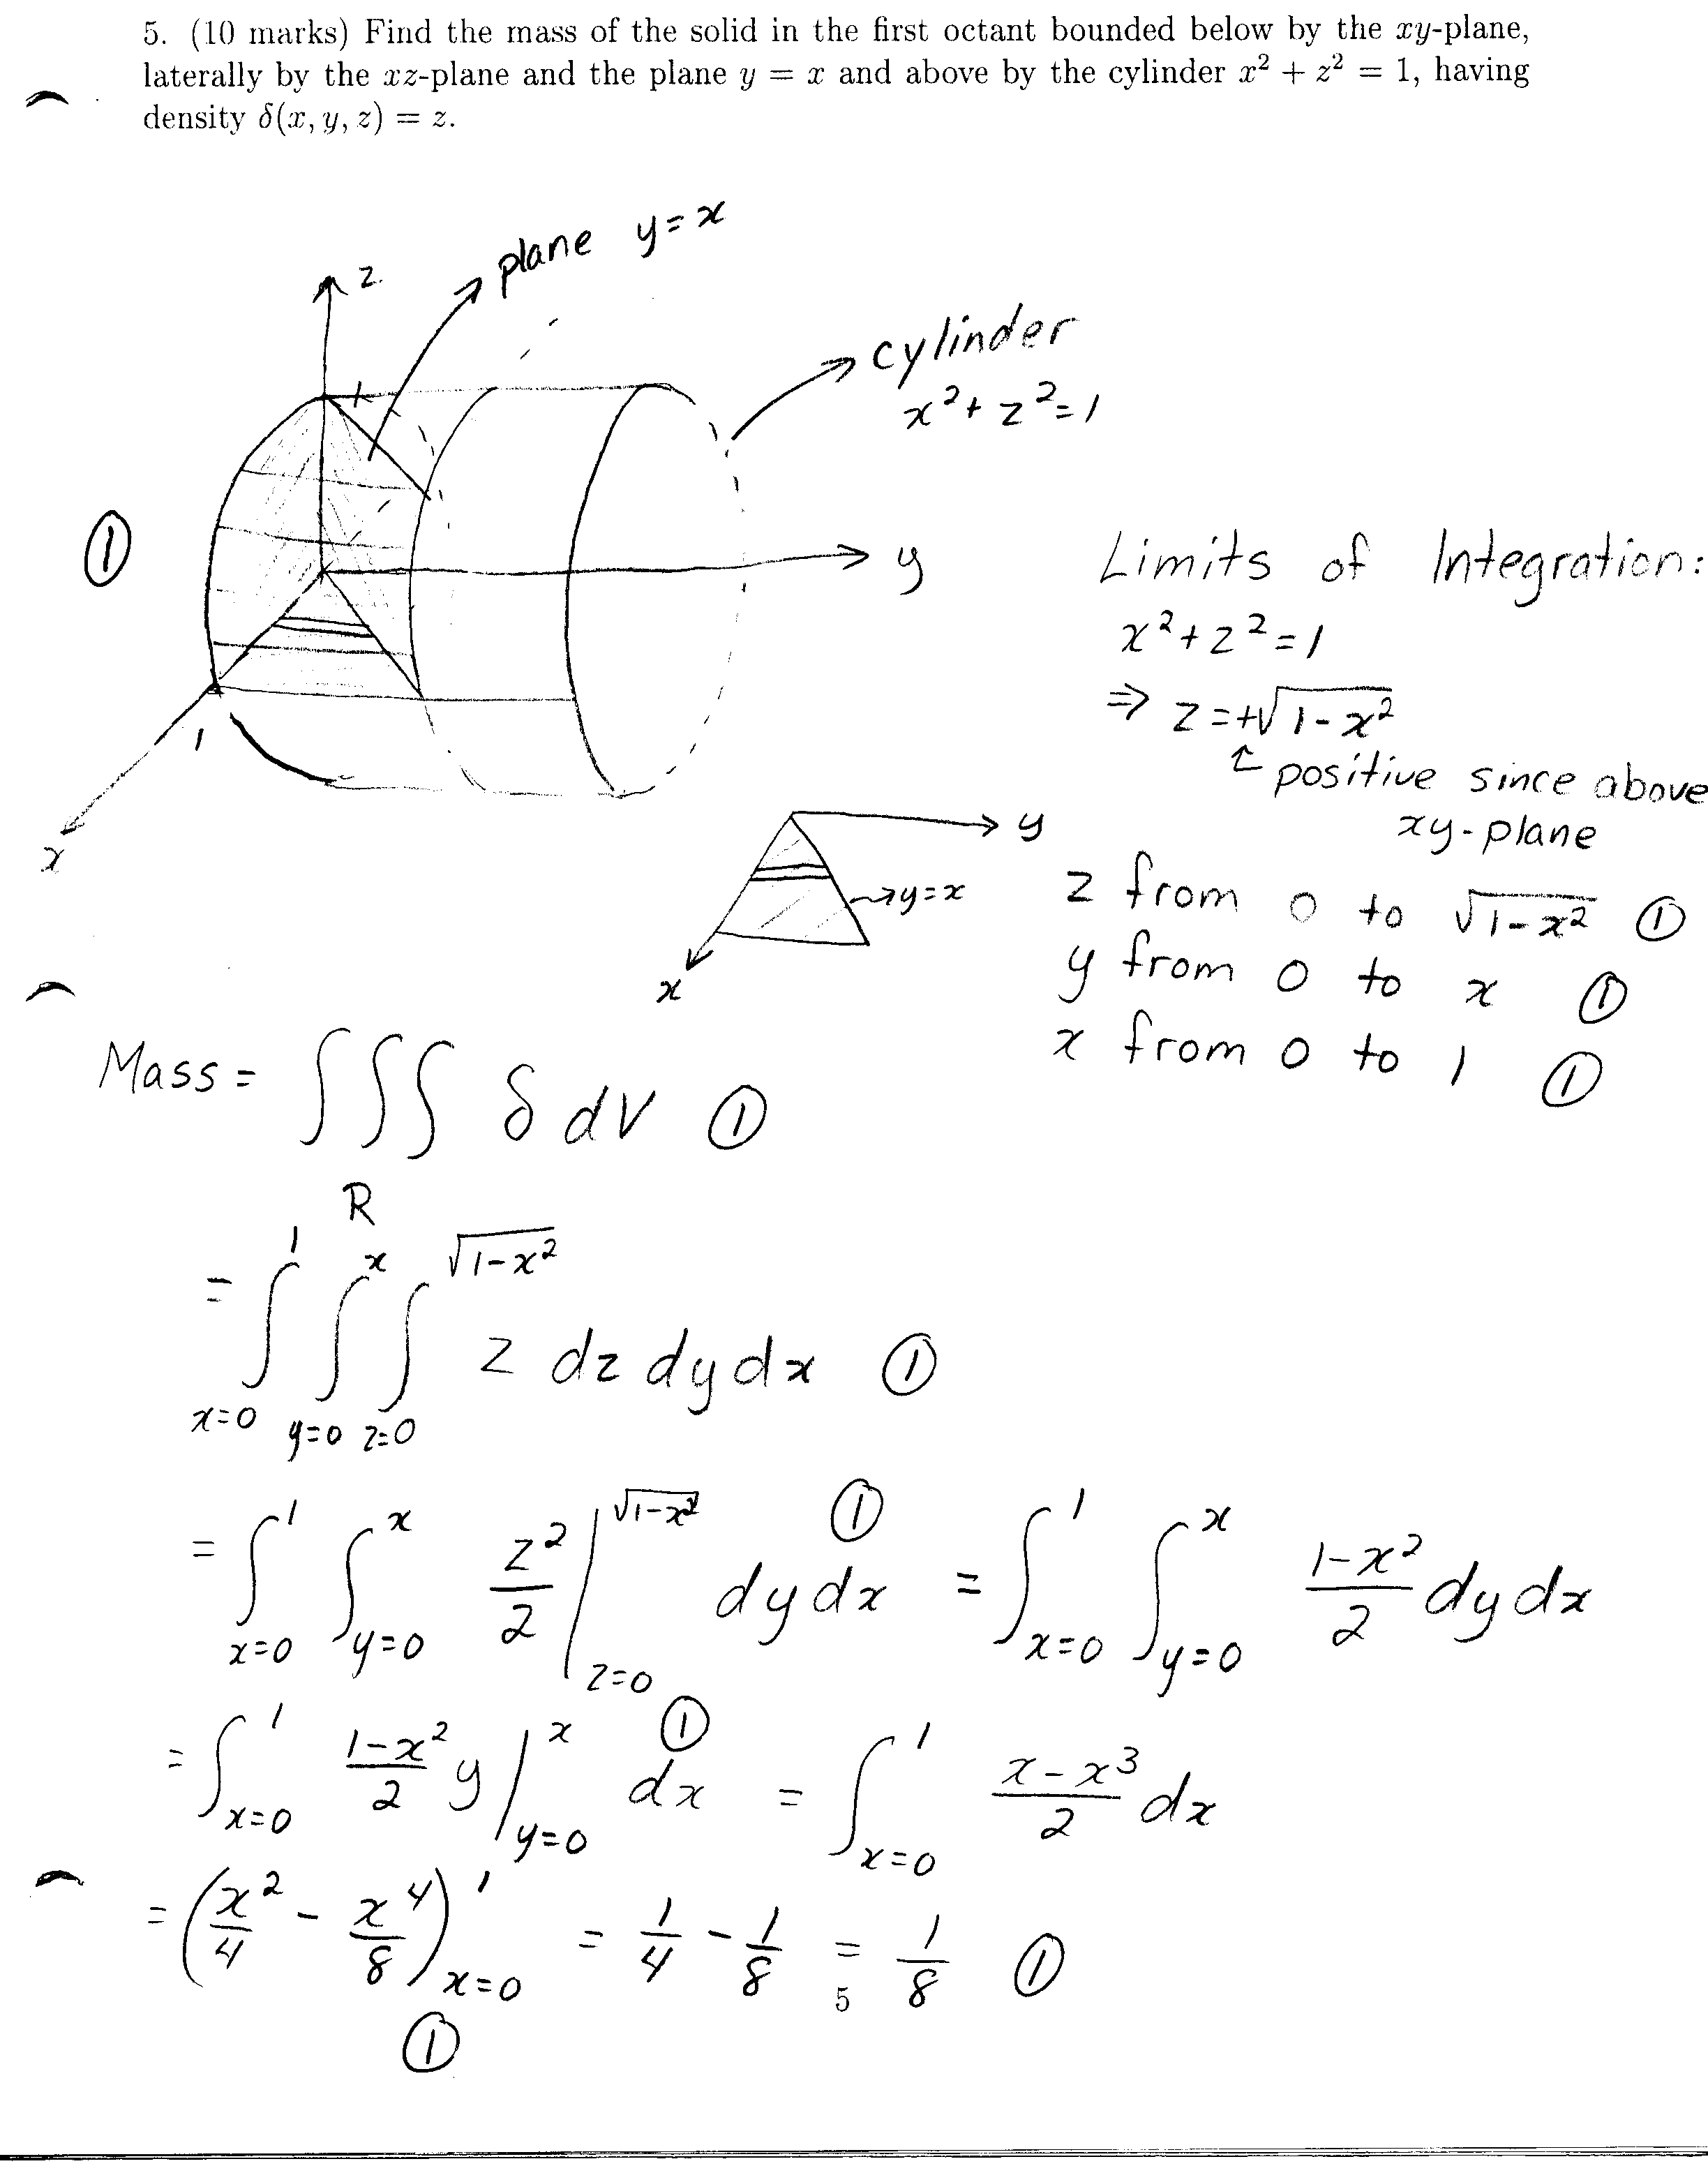 5. (10 marks) Find the mass of the solid in the first octant bounded below by the xy-plane,
laterally by the xz-plane and the plane y = x and above by the cylinder x² + z² = 1, having
density δ(x, y, z) = z.
plane y = x
z
cylinder
x² + z² = 1
①
y
1
x
Limits of Integration:
x² + z² = 1
⇒ z = +√(1-x²)
positive since above
xy-plane
y
y = x
x
z from 0 to √(1-x²) ①
y from 0 to x ①
x from 0 to 1 ①
Mass = ∫∫∫_R δ dV ①
= ∫_{x=0}^{1} ∫_{y=0}^{x} ∫_{z=0}^{√(1-x²)} z dz dy dx ①
= ∫_{x=0}^{1} ∫_{y=0}^{x} z²/2 |_{z=0}^{√(1-x²)} dy dx ① = ∫_{x=0}^{1} ∫_{y=0}^{x} (1-x²)/2 dy dx
= ∫_{x=0}^{1} (1-x²)/2 y |_{y=0}^{x} dx ① = ∫_{x=0}^{1} (x-x³)/2 dx
= (x²/4 - x⁴/8)_{x=0}^{1} = 1/4 - 1/8 = 1/8 ①
①
5